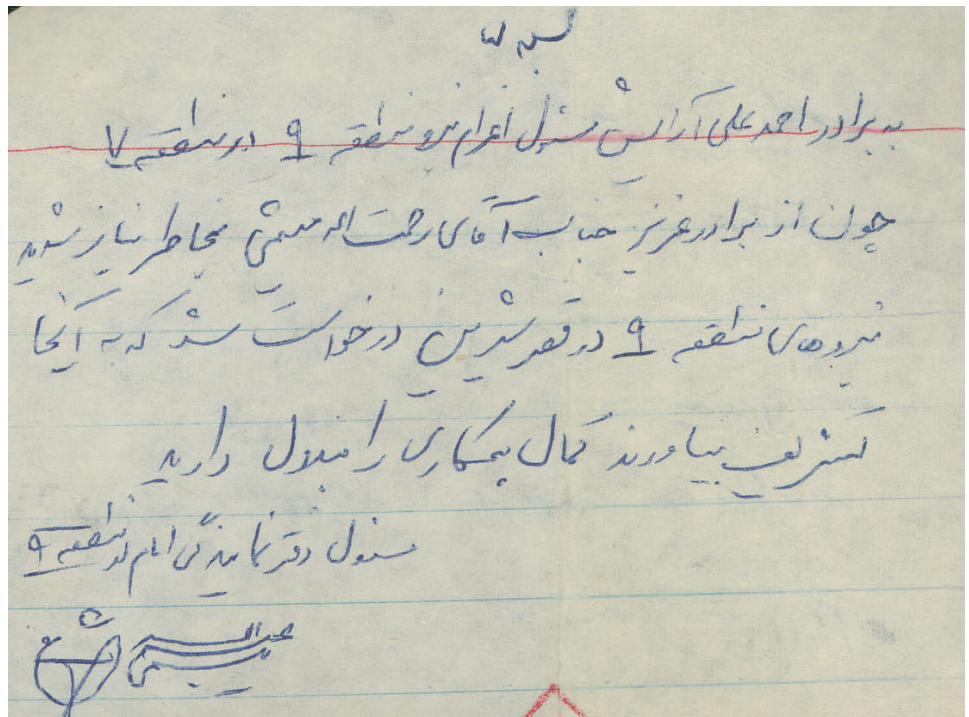 بسمه تعالی
به برادر احمد علی آرایش مسئول اعزام نیرو منطقه ۹ در منطقه ۷
چون از برادر عزیز جناب آقای رحمت اله میثمی بخاطر نیاز شدید
نیروهای منطقه ۹ در قصر شیرین درخواست شد که به آنجا
تشریف بیاورند کمال همکاری را مبذول دارید
مسئول دفتر نمایندگی امام در منطقه ۹
عبداله